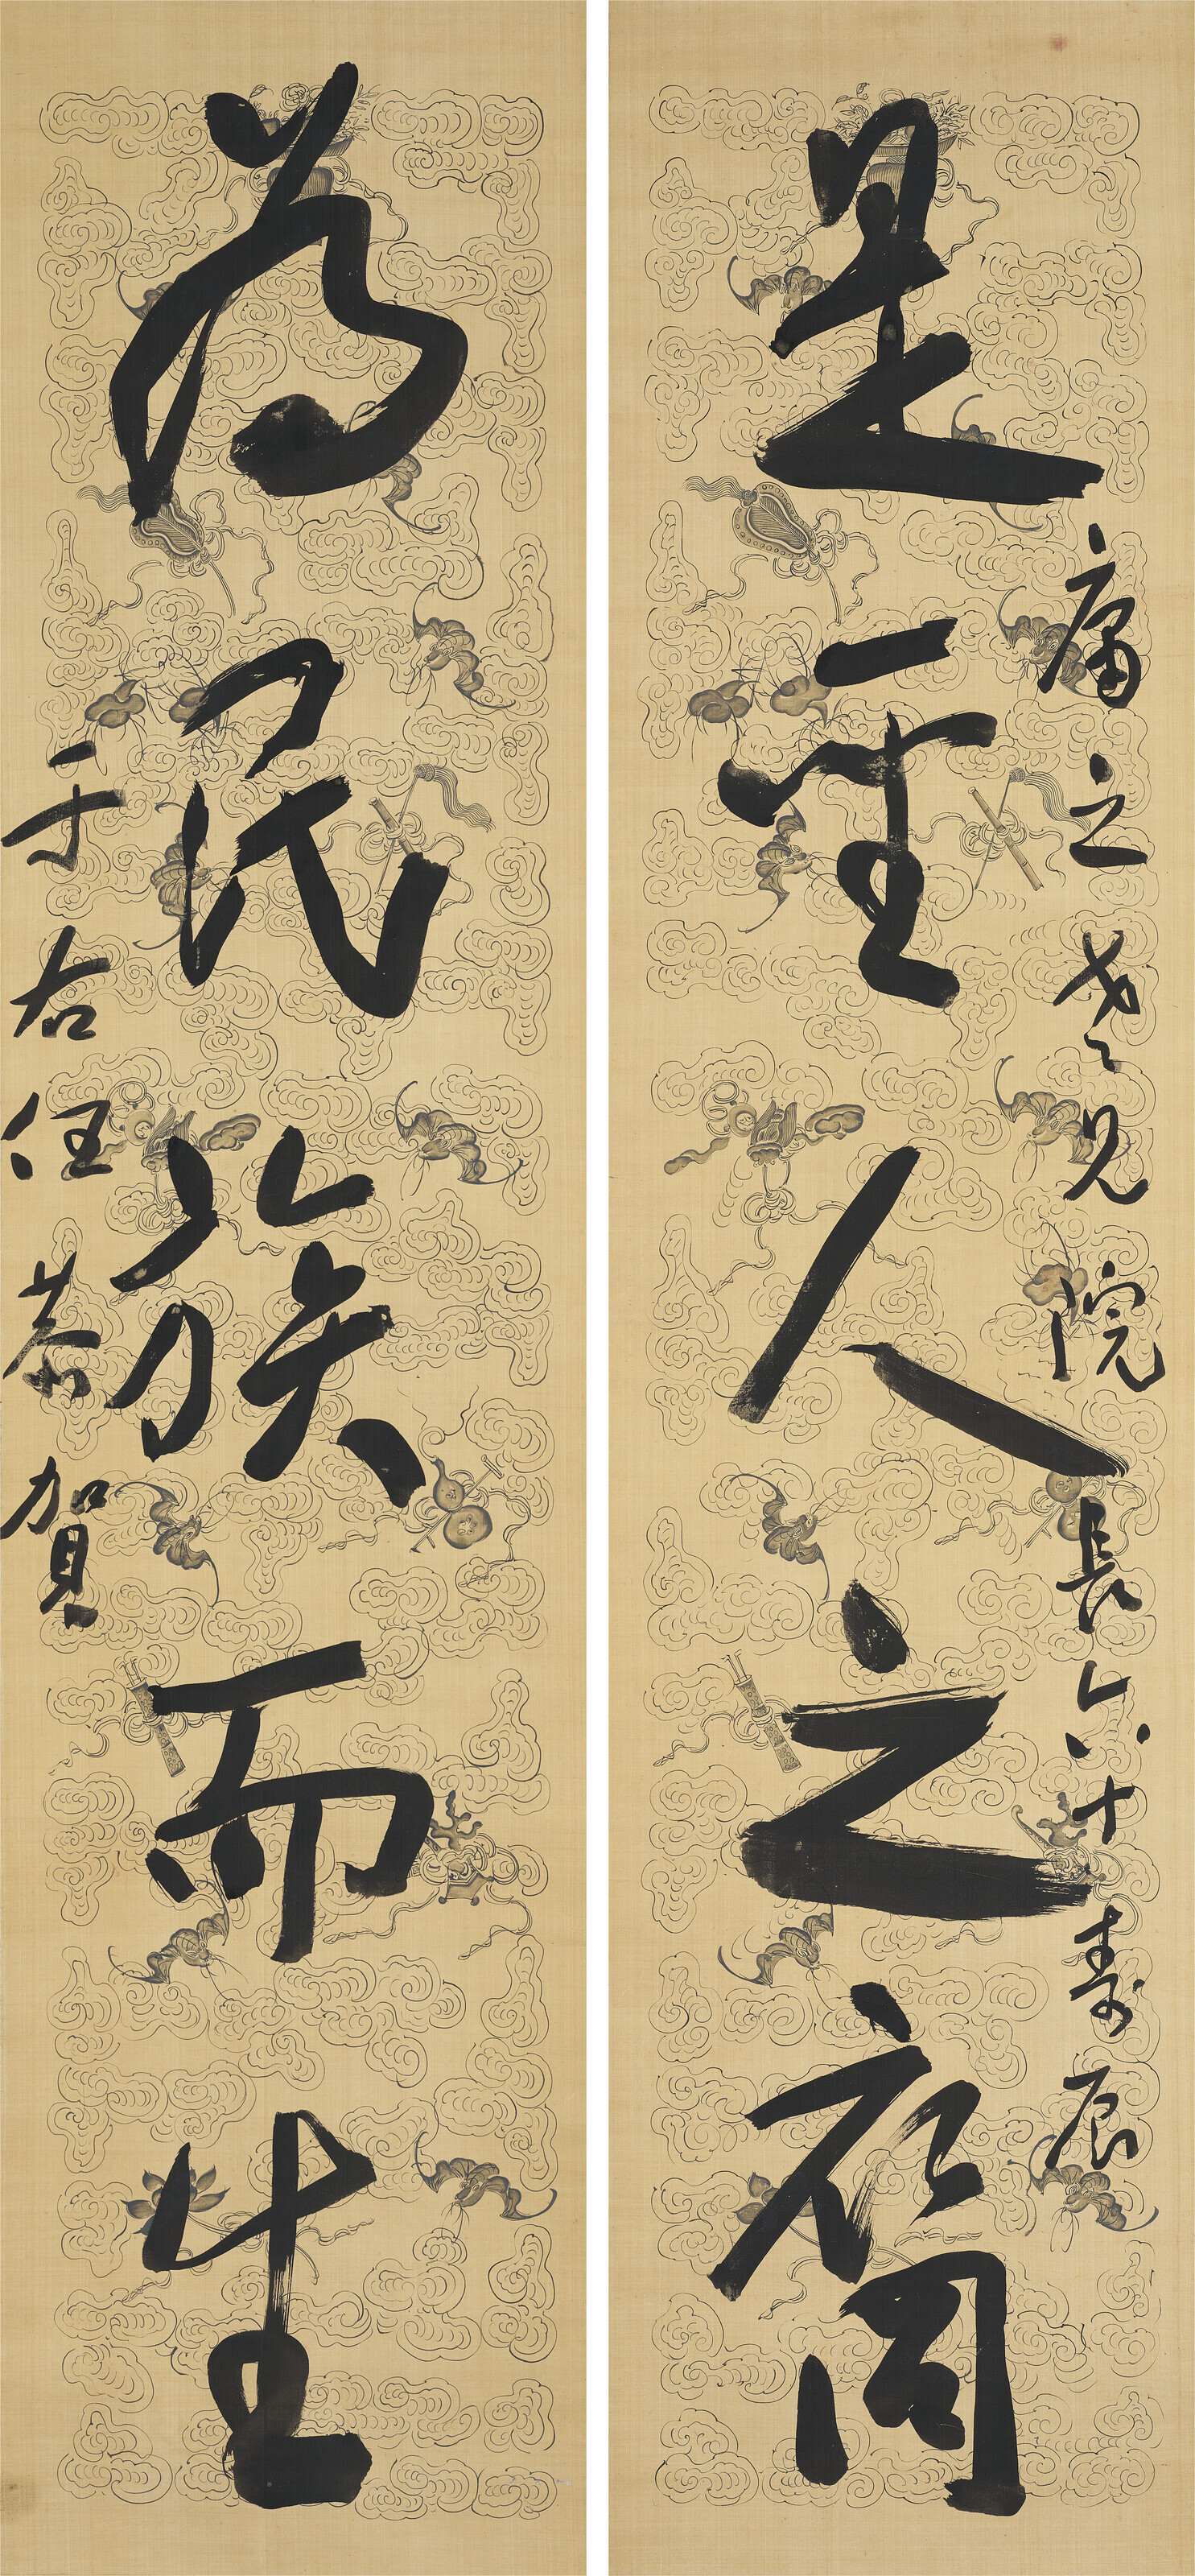 庸之老兄院長六十壽辰
是聖人之裔
為民族而生
于右任恭賀